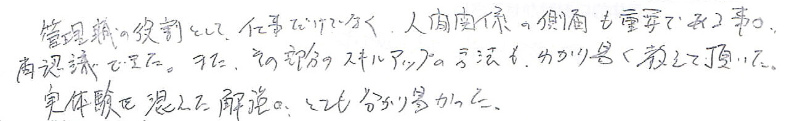 管理職の役割として、仕事だけでなく、人間関係の側面も重要である事の、
再認識できた。また、その部分のスキルアップの方法も、わかり易く教えて頂いた。
実体験を混えた解説の、とても分かり易かった。